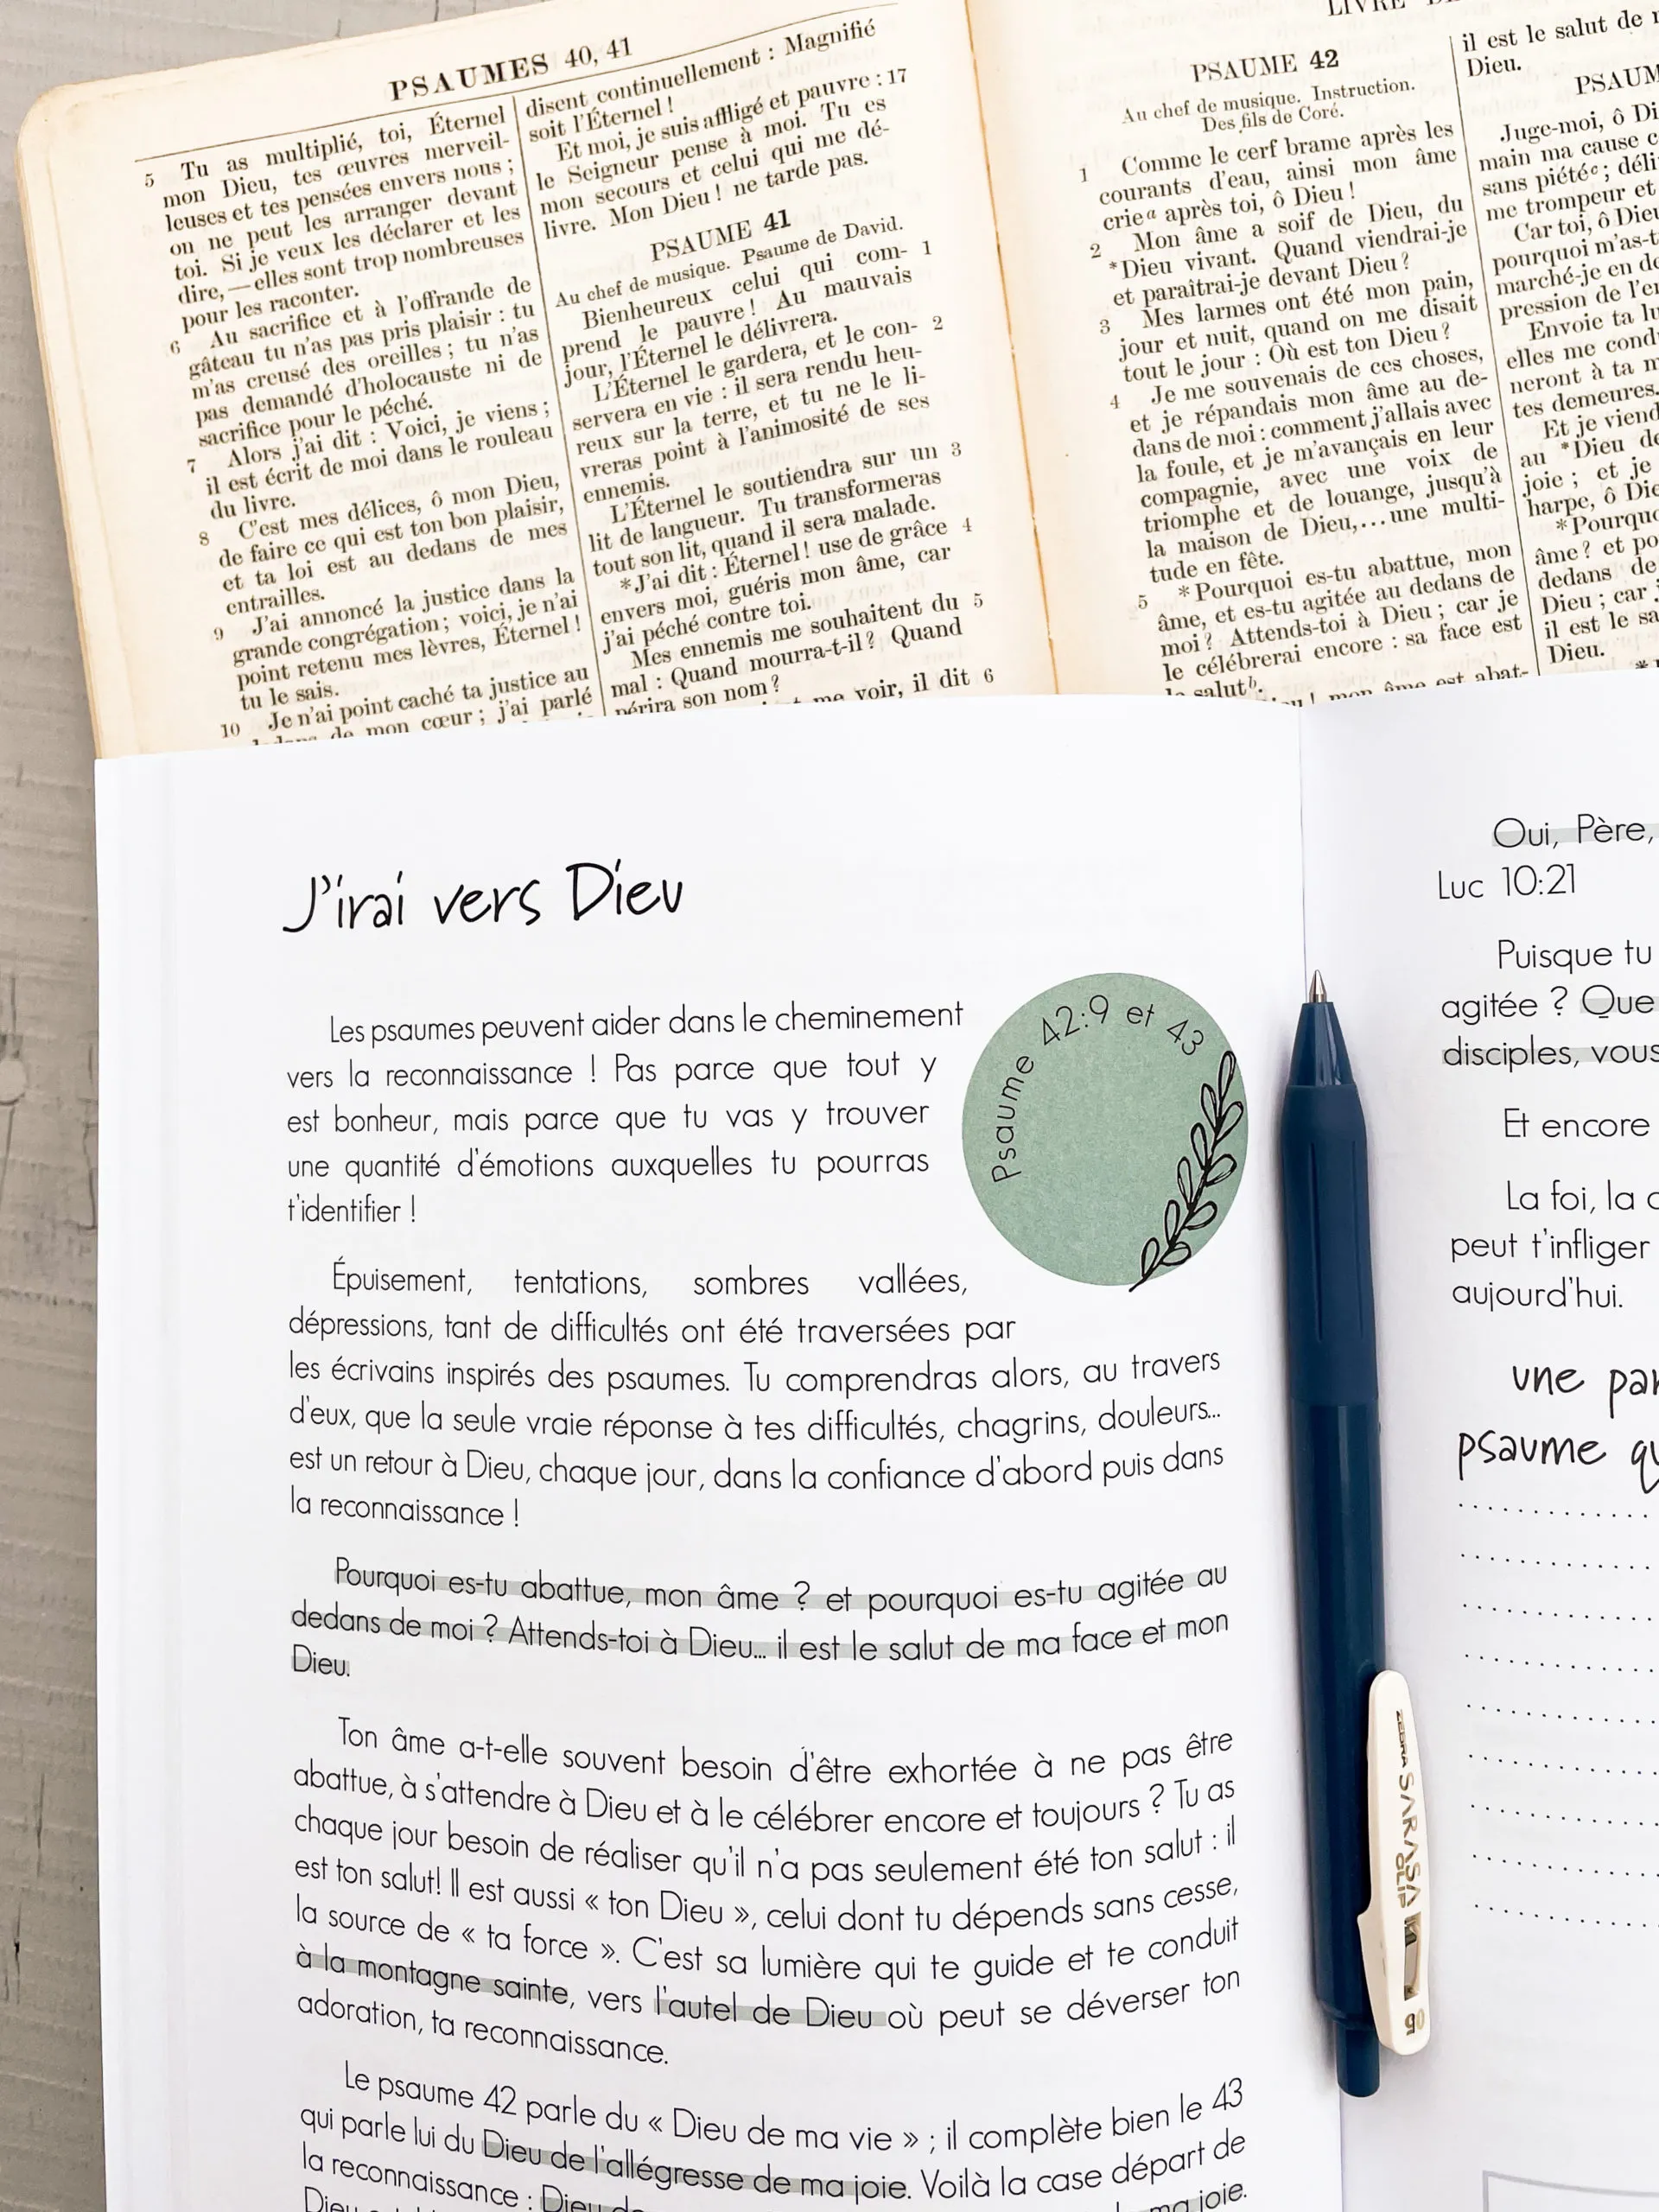 PSAUMES 40, 41
5 Tu as multiplié, toi, Éternel
mon Dieu, tes œuvres merveil-
leuses et tes pensées envers nous ;
on ne peut les arranger devant
toi. Si je veux les déclarer et les
dire, — elles sont trop nombreuses
pour les raconter.
6 Au sacrifice et à l'offrande de
gâteau tu n'as pas pris plaisir : tu
m'as creusé des oreilles ; tu n'as
pas demandé d'holocauste ni de
sacrifice pour le péché.
7 Alors j'ai dit : Voici, je viens ;
il est écrit de moi dans le rouleau
du livre.
8 C'est mes délices, ô mon Dieu,
de faire ce qui est ton bon plaisir,
et ta loi est au dedans de mes
entrailles.
9 J'ai annoncé la justice dans la
grande congrégation ; voici, je n'ai
point retenu mes lèvres, Éternel !
tu le sais.
10 Je n'ai point caché ta justice au
de mon cœur ; j'ai parlé
disent continuellement : Magnifié
soit l'Éternel !
Et moi, je suis affligé et pauvre : 17
le Seigneur pense à moi. Tu es
mon secours et celui qui me dé-
livre. Mon Dieu ! ne tarde pas.
PSAUME 41
Au chef de musique. Psaume de David.
Bienheureux celui qui com- 1
prend le pauvre ! Au mauvais
jour, l'Éternel le délivrera.
L'Éternel le gardera, et le con- 2
servera en vie : il sera rendu heu-
reux sur la terre, et tu ne le li-
vreras point à l'animosité de ses
ennemis.
L'Éternel le soutiendra sur un 3
lit de langueur. Tu transformeras
tout son lit, quand il sera malade.
*J'ai dit : Éternel ! use de grâce 4
envers moi, guéris mon âme, car
j'ai péché contre toi.
Mes ennemis me souhaitent du 5
mal : Quand mourra-t-il ? Quand
périra son nom ?
me voir, il dit 6
LIVRE
PSAUME 42
Au chef de musique. Instruction.
Des fils de Coré.
1 Comme le cerf brame après les
courants d'eau, ainsi mon âme
crieᵃ après toi, ô Dieu !
2 Mon âme a soif de Dieu, du
*Dieu vivant. Quand viendrai-je
et paraîtrai-je devant Dieu ?
3 Mes larmes ont été mon pain,
jour et nuit, quand on me disait
tout le jour : Où est ton Dieu ?
4 Je me souvenais de ces choses,
et je répandais mon âme au de-
dans de moi : comment j'allais avec
la foule, et je m'avançais en leur
compagnie, avec une voix de
triomphe et de louange, jusqu'à
la maison de Dieu,... une multi-
tude en fête.
5 *Pourquoi es-tu abattue, mon
âme, et es-tu agitée au dedans de
moi ? Attends-toi à Dieu ; car je
le célébrerai encore : sa face est
le salutᵇ.
! mon âme est abat-
il est le salut de
Dieu.
PSAUM
Juge-moi, ô Di
main ma cause c
sans piétéᶜ ; déli
me trompeur et
Car toi, ô Dieu
pourquoi m'as-t
marché-je en de
pression de l'en
Envoie ta lu
elles me cond
neront à ta m
tes demeures.
Et je viend
au *Dieu de
joie ; et je
harpe, ô Die
*Pourquo
âme ? et po
dedans de
Dieu ; car
il est le sa
Dieu.
J'irai vers Dieu
Psaume 42:9 et 43
Les psaumes peuvent aider dans le cheminement
vers la reconnaissance ! Pas parce que tout y
est bonheur, mais parce que tu vas y trouver
une quantité d'émotions auxquelles tu pourras
t'identifier !
Épuisement, tentations, sombres vallées,
dépressions, tant de difficultés ont été traversées par
les écrivains inspirés des psaumes. Tu comprendras alors, au travers
d'eux, que la seule vraie réponse à tes difficultés, chagrins, douleurs...
est un retour à Dieu, chaque jour, dans la confiance d'abord puis dans
la reconnaissance !
Pourquoi es-tu abattue, mon âme ? et pourquoi es-tu agitée au
dedans de moi ? Attends-toi à Dieu... il est le salut de ma face et mon
Dieu.
Ton âme a-t-elle souvent besoin d'être exhortée à ne pas être
abattue, à s'attendre à Dieu et à le célébrer encore et toujours ? Tu as
chaque jour besoin de réaliser qu'il n'a pas seulement été ton salut : il
est ton salut! Il est aussi « ton Dieu », celui dont tu dépends sans cesse,
la source de « ta force ». C'est sa lumière qui te guide et te conduit
à la montagne sainte, vers l'autel de Dieu où peut se déverser ton
adoration, ta reconnaissance.
Le psaume 42 parle du « Dieu de ma vie » ; il complète bien le 43
qui parle lui du Dieu de l'allégresse de ma joie. Voilà la case départ de
la reconnaissance : Dieu
ma joie.
Oui, Père,
Luc 10:21
Puisque tu
agitée ? Que
disciples, vous
Et encore
La foi, la c
peut t'infliger
aujourd'hui.
une par
psaume qu
ZEBRA SARASA CLIP